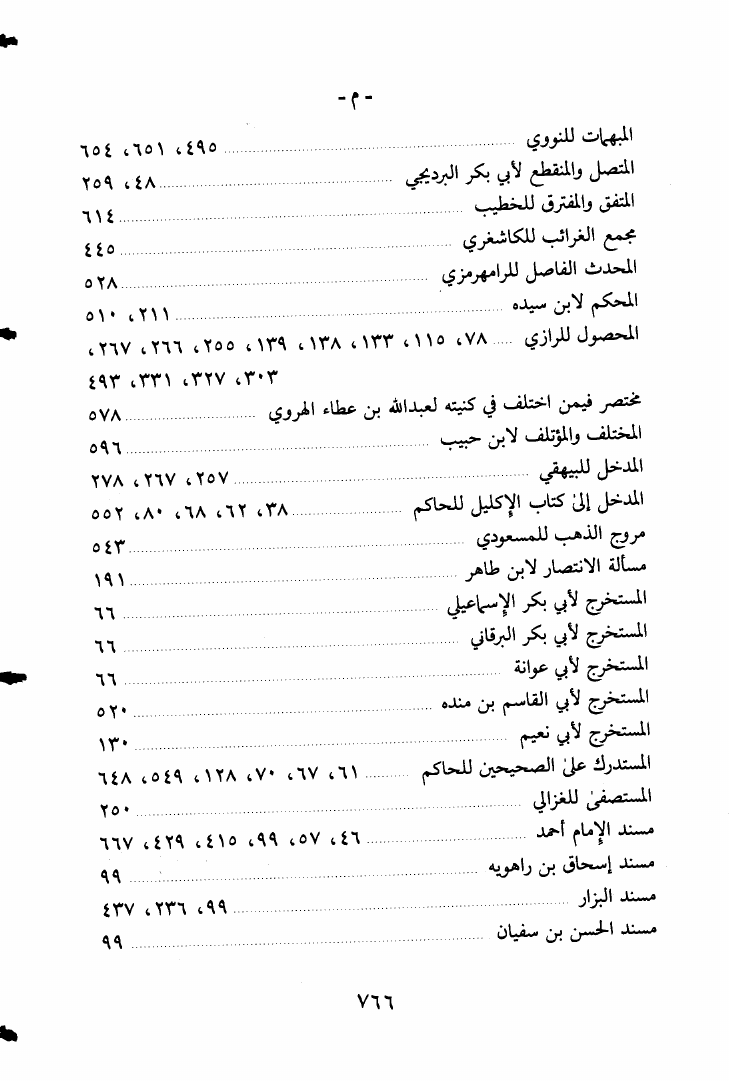 - م -
المبهمات للنووي ..... ٤٩٥، ٦٥١، ٦٥٤
المتصل والمنقطع لأبي بكر البرديجي ..... ٤٨، ٢٥٩
المتفق والمفترق للخطيب ..... ٦١٤
مجمع الغرائب للكاشغري ..... ٤٤٥
المحدث الفاصل للرامهرمزي ..... ٥٢٨
المحكم لابن سيده ..... ٢١١، ٥١٠
المحصول للرازي ..... ٧٨، ١١٥، ١٣٣، ١٣٨، ١٣٩، ٢٥٥، ٢٦٦، ٢٦٧،
٣٠٣، ٣٢٧، ٣٣١، ٤٩٣
مختصر فيمن اختلف في كنيته لعبدالله بن عطاء الهروي ..... ٥٧٨
المختلف والمؤتلف لابن حبيب ..... ٥٩٦
المدخل للبيهقي ..... ٢٥٧، ٢٦٧، ٢٧٨
المدخل إلىٰ كتاب الإكليل للحاكم ..... ٣٨، ٦٢، ٦٨، ٨٠، ٥٥٢
مروج الذهب للمسعودي ..... ٥٤٣
مسألة الانتصار لابن طاهر ..... ١٩١
المستخرج لأبي بكر الإسماعيلي ..... ٦٦
المستخرج لأبي بكر البرقاني ..... ٦٦
المستخرج لأبي عوانة ..... ٦٦
المستخرج لأبي القاسم بن منده ..... ٥٢٠
المستخرج لأبي نعيم ..... ١٣٠
المستدرك علىٰ الصحيحين للحاكم ..... ٦١، ٦٧، ٧٠، ١٢٨، ٥٤٩، ٦٤٨
المستصفىٰ للغزالي ..... ٢٥٠
مسند الإمام أحمد ..... ٤٦، ٥٧، ٩٩، ٤١٥، ٤٢٩، ٦٦٧
مسند إسحاق بن راهويه ..... ٩٩
مسند البزار ..... ٩٩، ٢٣٦، ٤٣٧
مسند الحسن بن سفيان ..... ٩٩
٧٦٦